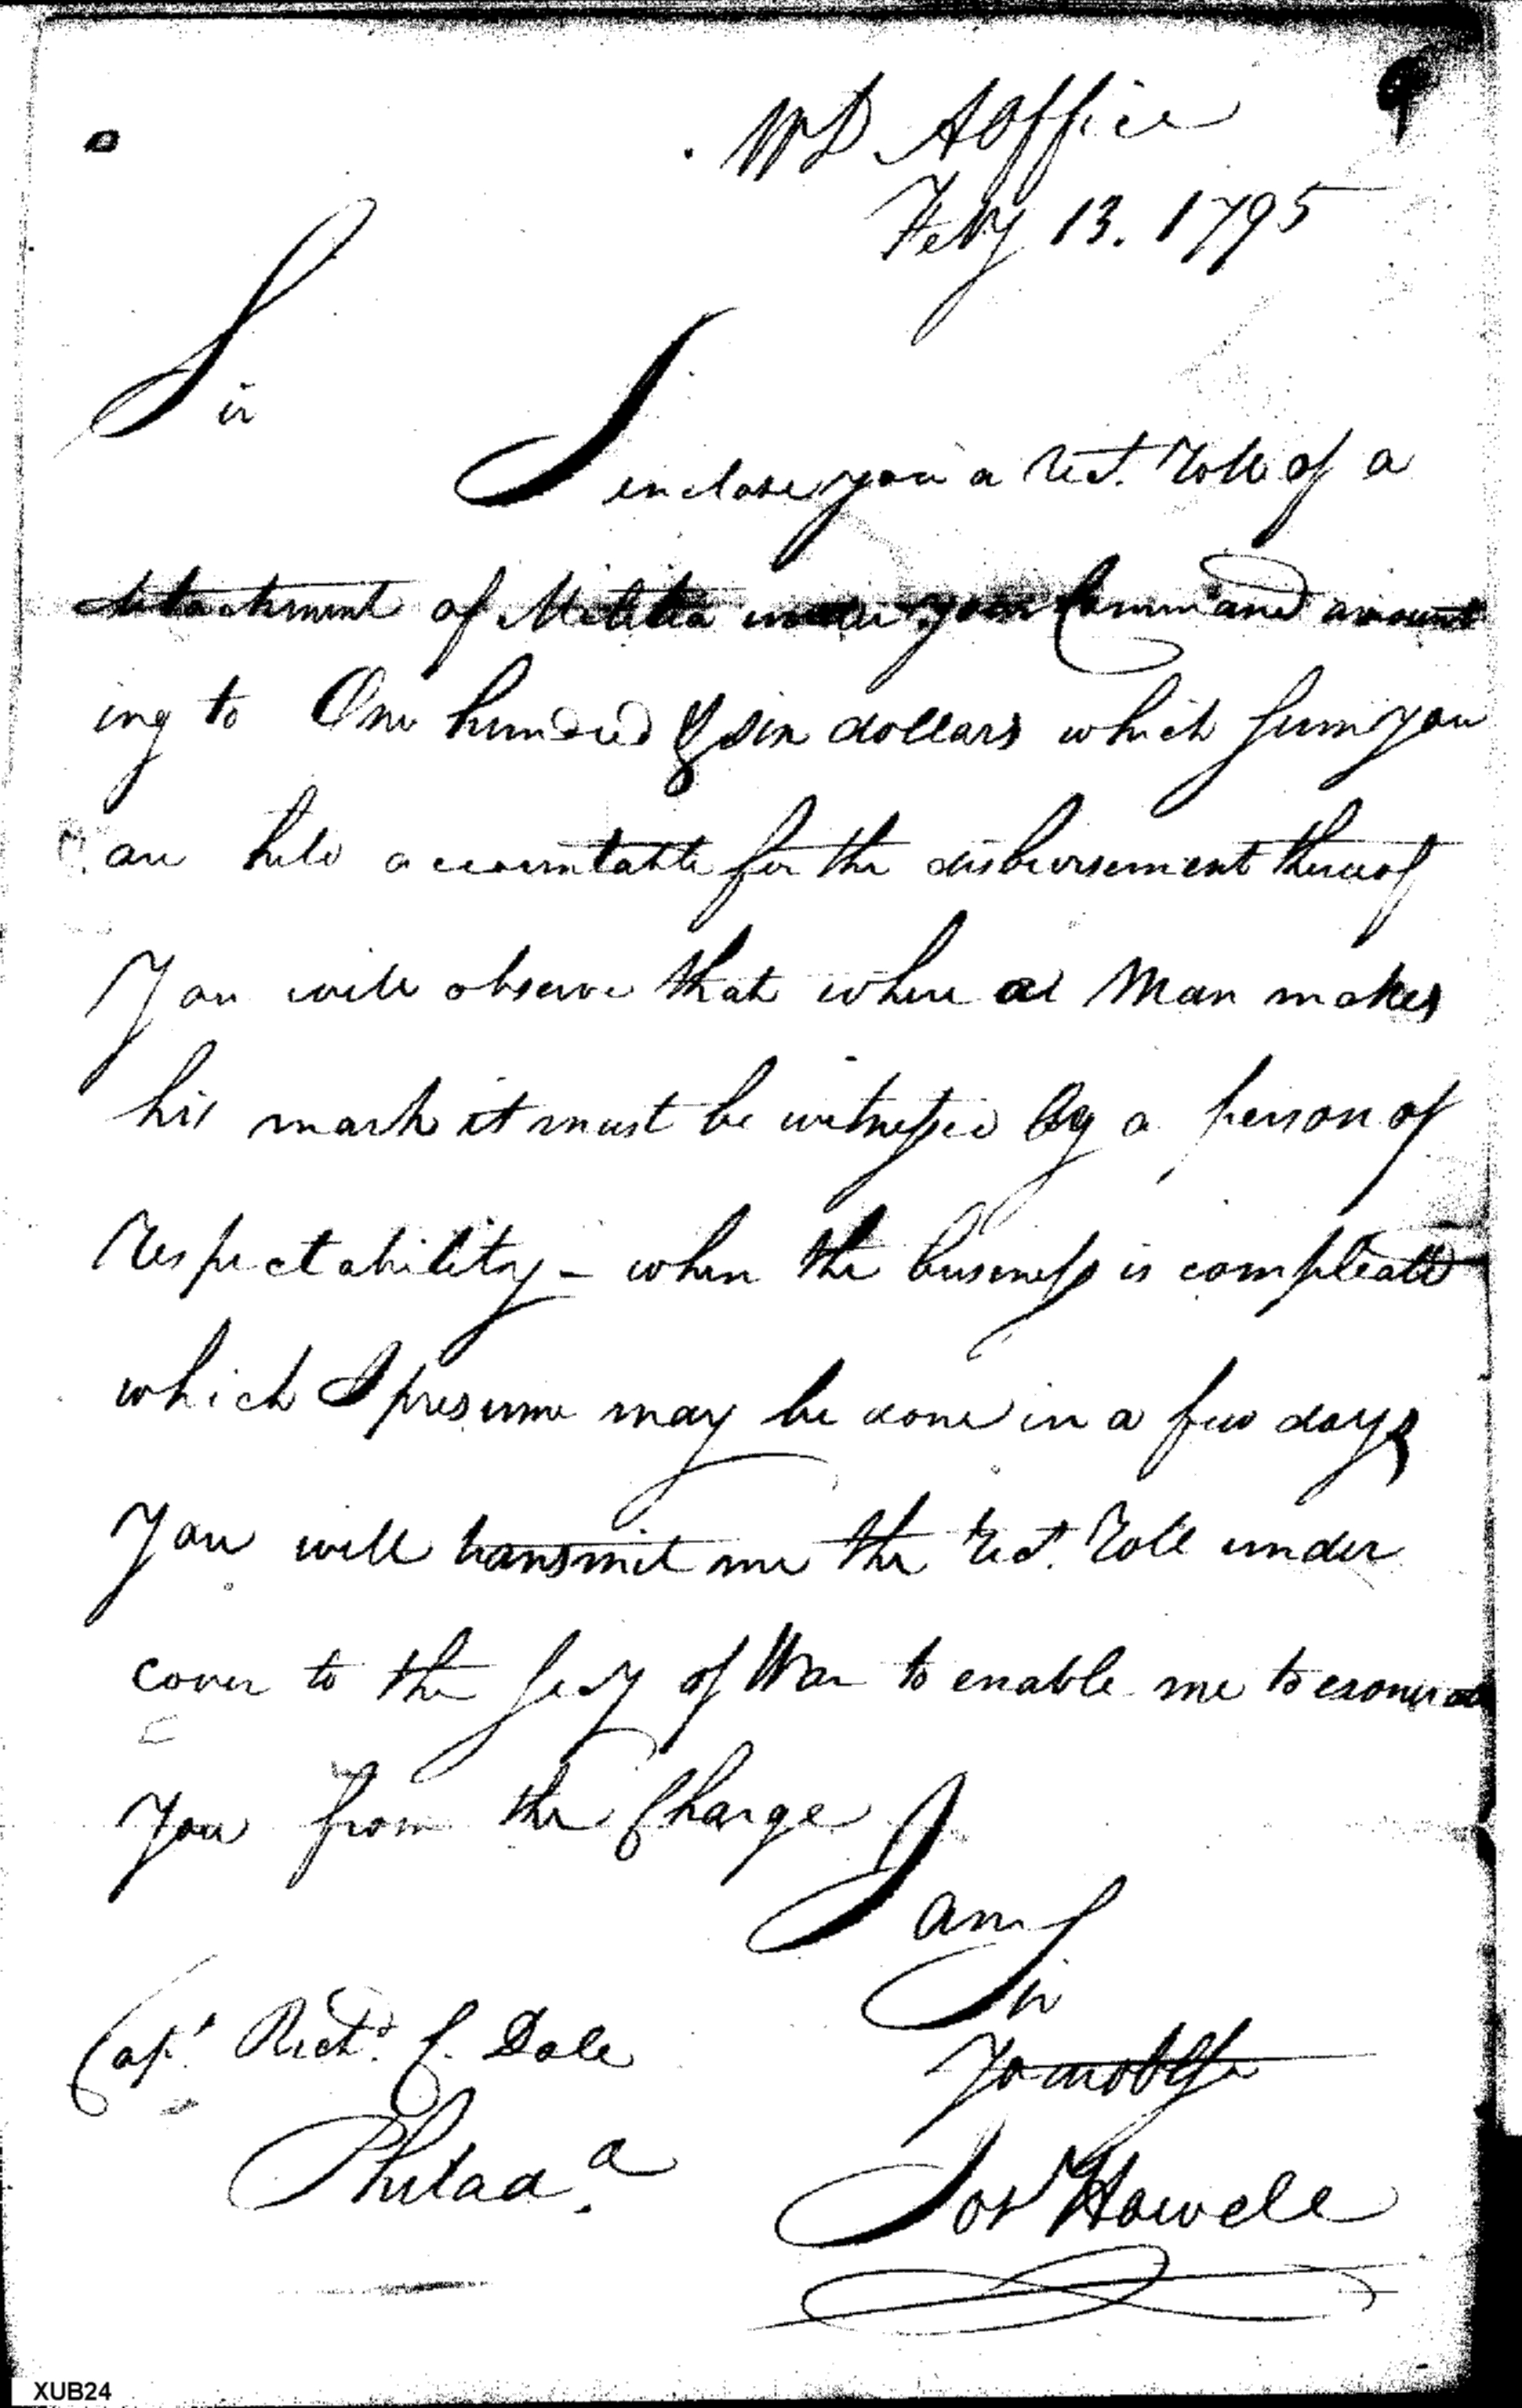 WD. AOffice
Feby 13. 1795
Sir
I enclose you a rect. Roll of a
detachment of Militia under your Command amount
ing to One hundred & six dollars which sum you
are held accountable for the disbursement thereof
You will observe that where a Man makes
his mark it must be witnessed by a person of
respectability - when the business is compleated
which I presume may be done in a few days
You will transmit me the rect. Roll under
cover to the Secy of War to enable me to exonerate
You from the Charge
I am
Sir
Capt. Richd. C. Dale
Philada.
Jos Howell
XUB24